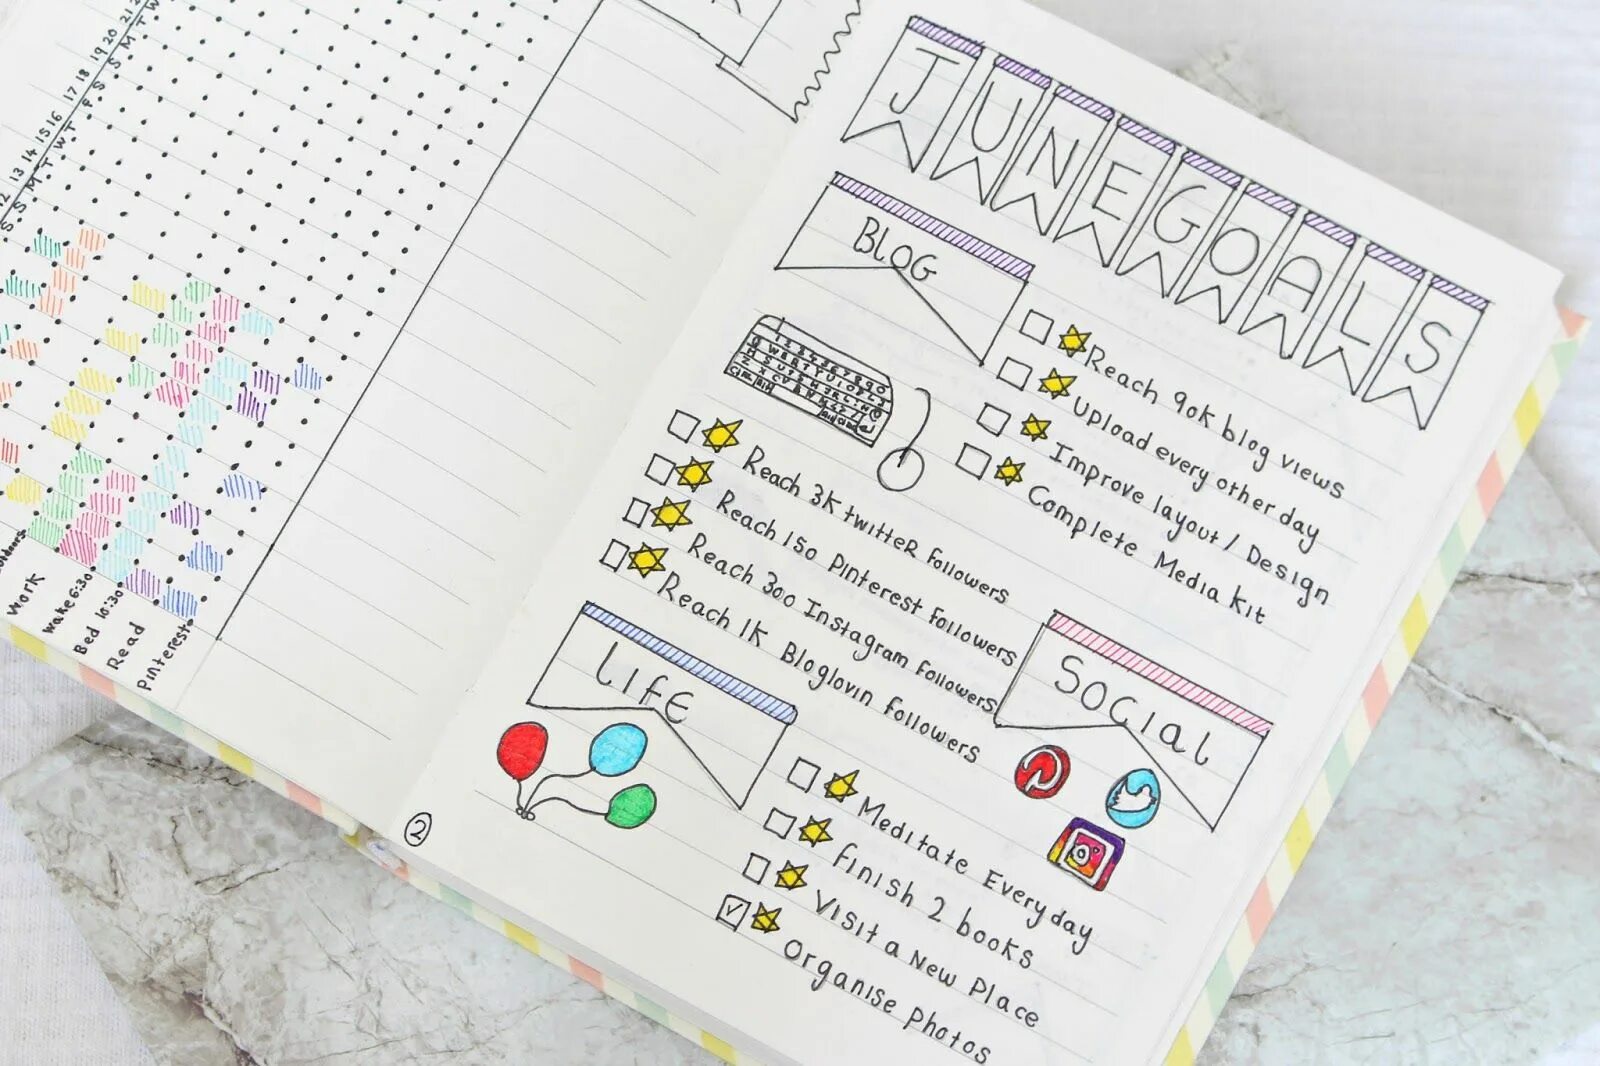 12 13 14 15 16 17 18 19 20 21
S S M T W T F S S M T W
Work
Wake 6:30
Bed 10:30
Read
Pinterest
2
JUNE GOALS
BLOG
Reach 90K blog views
Upload every other day
Improve layout / Design
Complete Media Kit
Reach 3K twitter followers
Reach 150 Pinterest followers
Reach 300 Instagram followers
Reach 1K Bloglovin followers
Social
Life
Meditate Everyday
Finish 2 books
Visit a New Place
Organise Photos